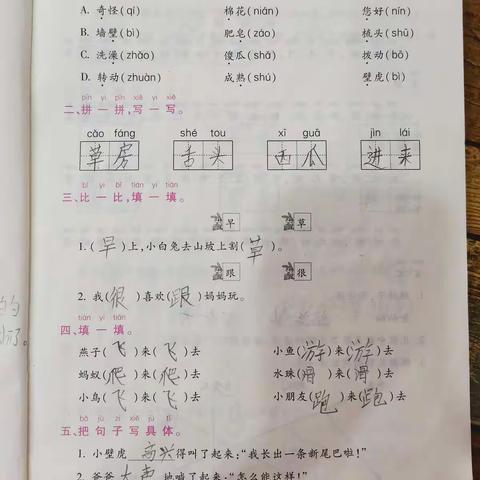 A. 奇怪(qí) 棉花(nián) 您好(nín)
B. 墙壁(bì) 肥皂(záo) 梳头(shū)
C. 洗澡(zhǎo) 傻瓜(shǎ) 拨动(bō)
D. 转动(zhuàn) 成熟(shú) 壁虎(bì)
pīn yi pīn xiě yi xiě
二、拼一拼,写一写。
cǎo fáng shé tou xī guā jìn lái
草房 舌头 西瓜 进来
bǐ yi bǐ tián yi tián
三、比一比,填一填。
早 草
1.(早)上,小白兔去山坡上割(草)。
跟 很
2. 我(很)喜欢(跟)妈妈玩。
tián yi tián
四、填一填。
燕子(飞)来(飞)去 小鱼(游)来(游)去
蚂蚁(爬)来(爬)去 水珠(滑)来(滑)去
小鸟(飞)来(飞)去 小朋友(跑)来(跑)去
bǎ jù zi xiě jù tǐ
五、把句子写具体。
1. 小壁虎 高兴得叫了起来:“我长出一条新尾巴啦!”
2. 爸爸 大声 地喊了起来:“怎么能这样!”